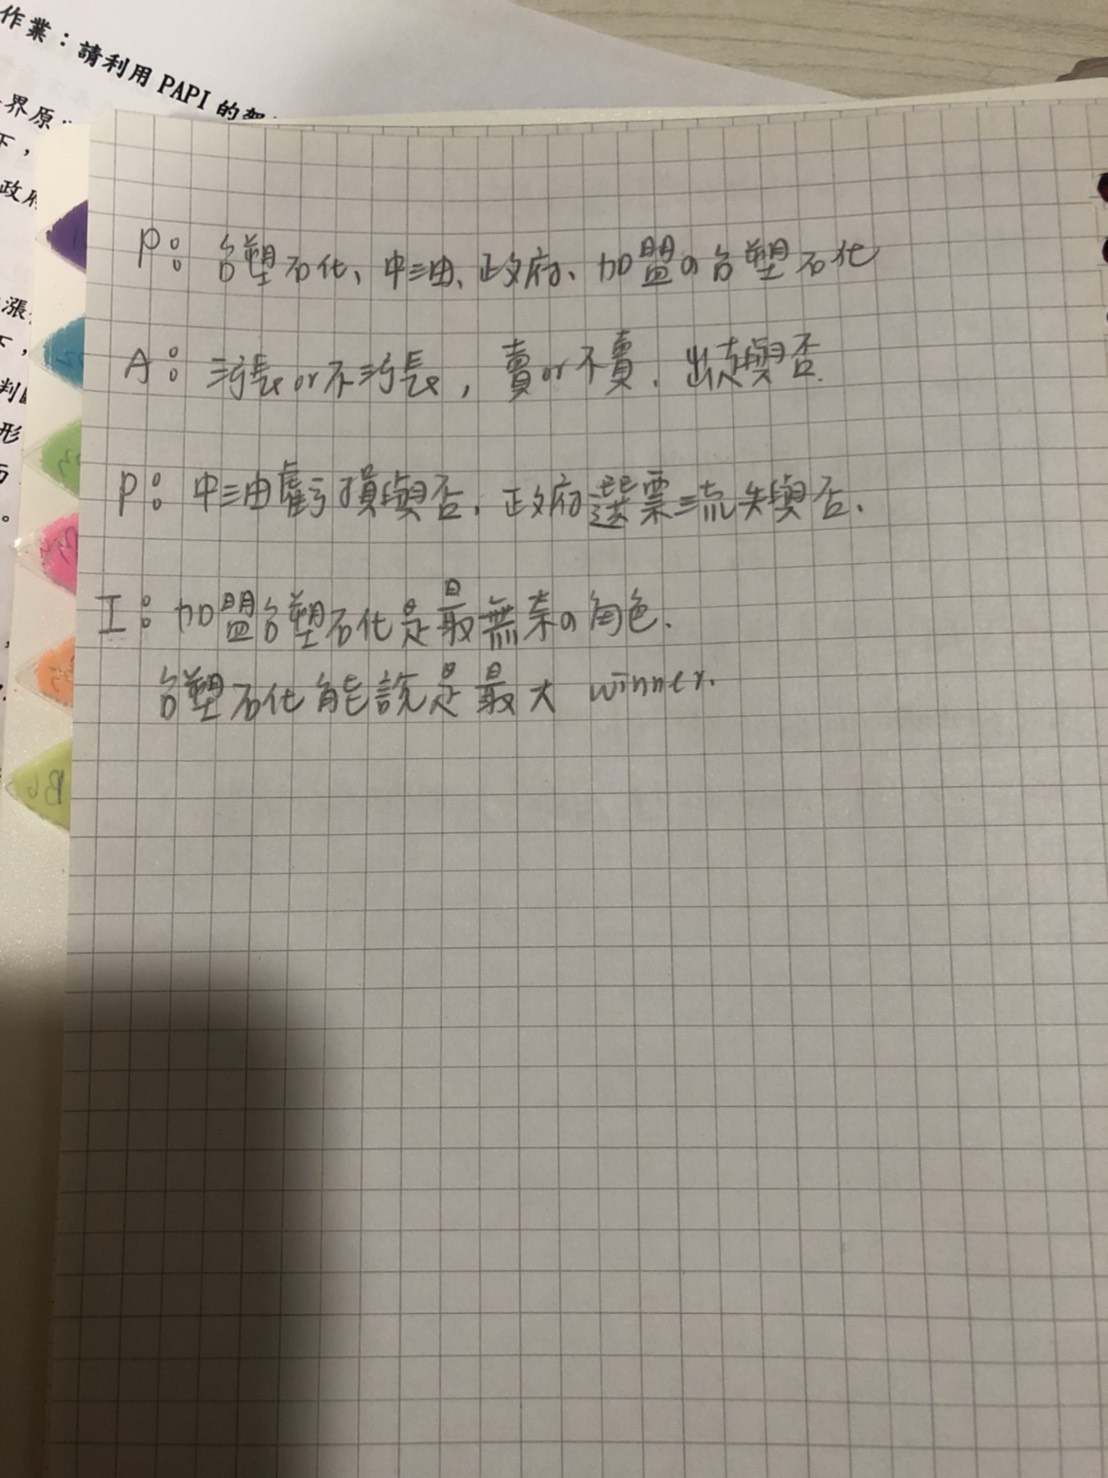 作業：請利用 PAPI 的
界原
下，
政府
漲
判
形
。
P：台塑石化、中油、政府、加盟の台塑石化
A：漲 or 不漲，賣 or 不賣．出走與否．
P：中油虧損與否．政府選票流失與否．
I：加盟台塑石化是最無奈の角色．
台塑石化能說是最大 winner.